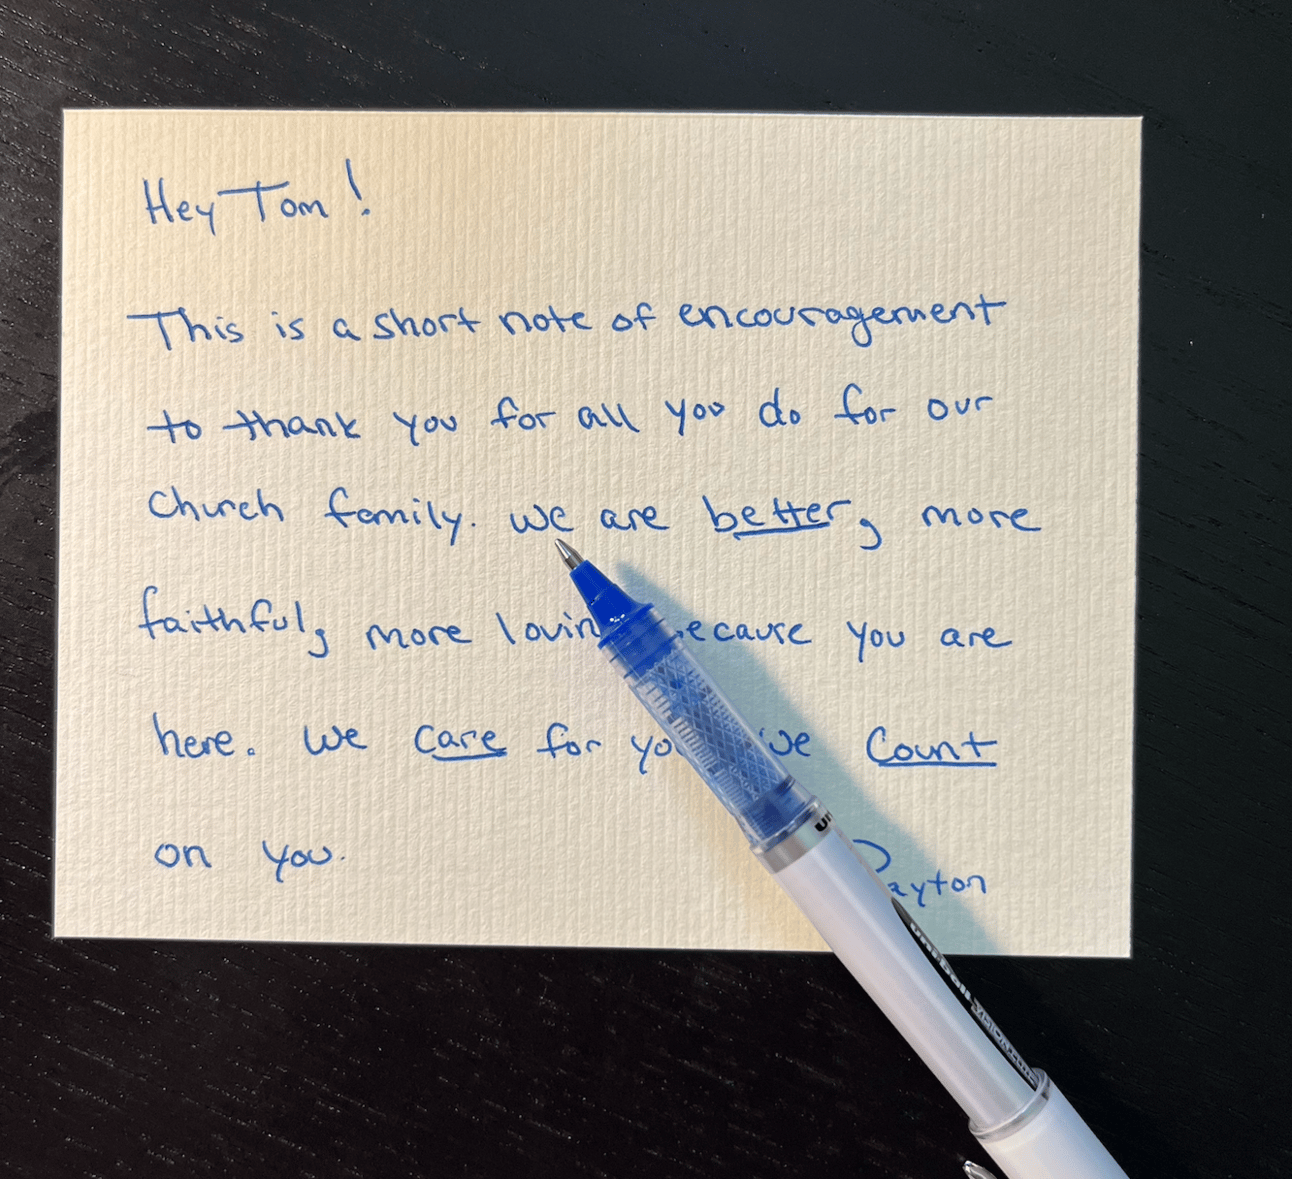 Hey Tom!
This is a short note of encouragement
to thank you for all you do for our
church family. We are better, more
faithful, more lovin ecause you are
here. We care for yo we count
on you.
ayton
uniball VISION